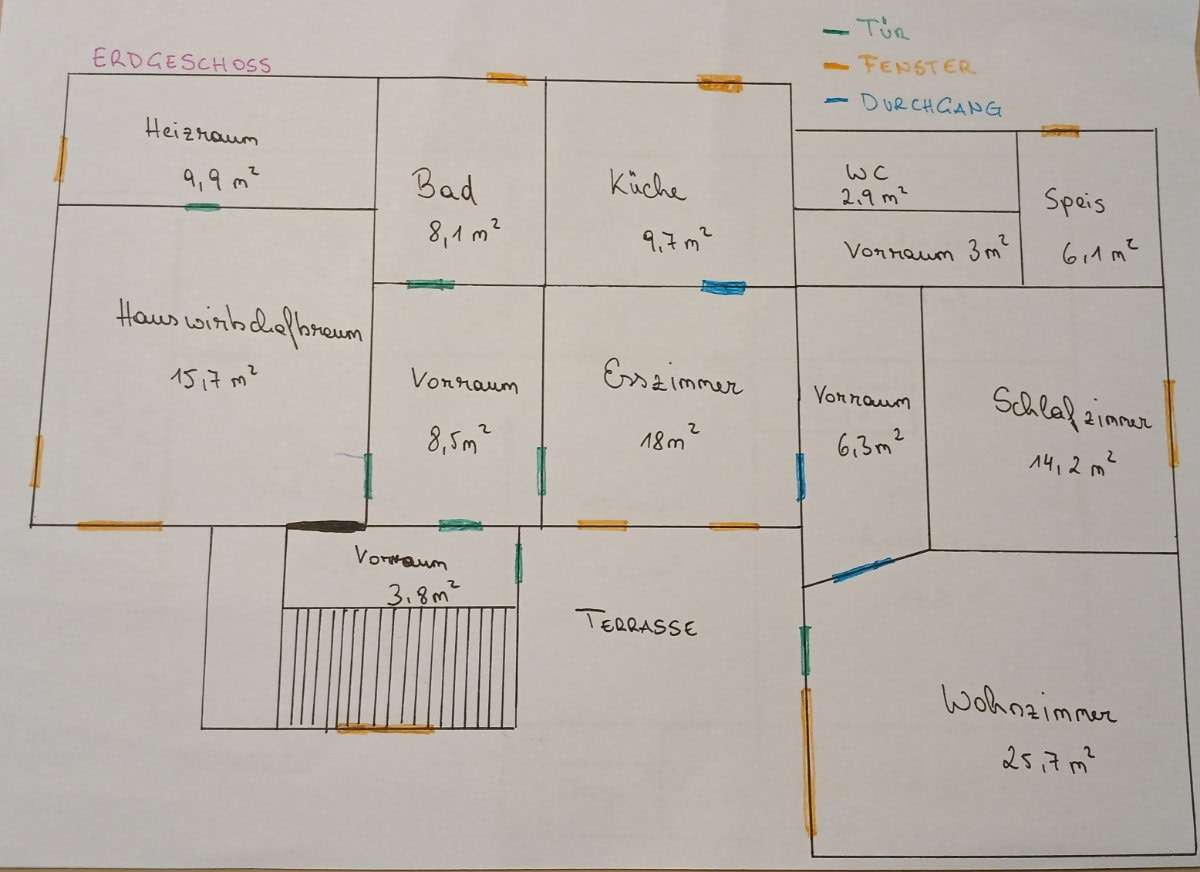 ERDGESCHOSS
TÜR
FENSTER
DURCHGANG
Heizraum
9,9 m²
Bad
8,1 m²
Küche
9,7 m²
WC
2,9 m²
Vorraum 3 m²
Speis
6,1 m²
Hauswirtschaftsraum
15,7 m²
Vorraum
8,5 m²
Esszimmer
18 m²
Vorraum
6,3 m²
Schlafzimmer
14,2 m²
Vorraum
3,8 m²
TERRASSE
Wohnzimmer
25,7 m²